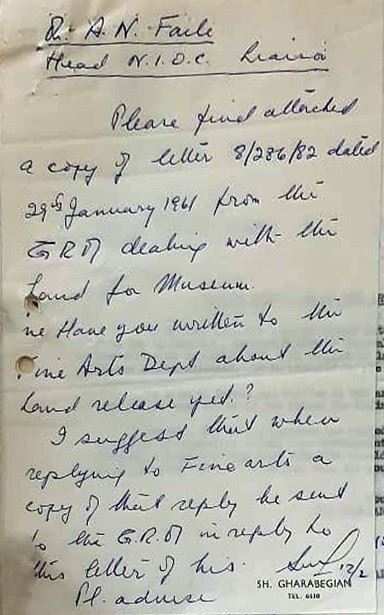 A. N. Faile
Head N.I.O.C.
Please find attached
a copy of letter 8/286/82 dated
29th January 1961 from the
G.R.M dealing with the
Land for Museum.
Have you written to the
Fine Arts Dept about the
Land release yet?
I suggest that when
replying to Fine arts a
copy of that reply be sent
to the G.R.M in reply to
this letter of his. 12/2
SH. GHARABEGIAN
TEL. 6510
Pl. advise